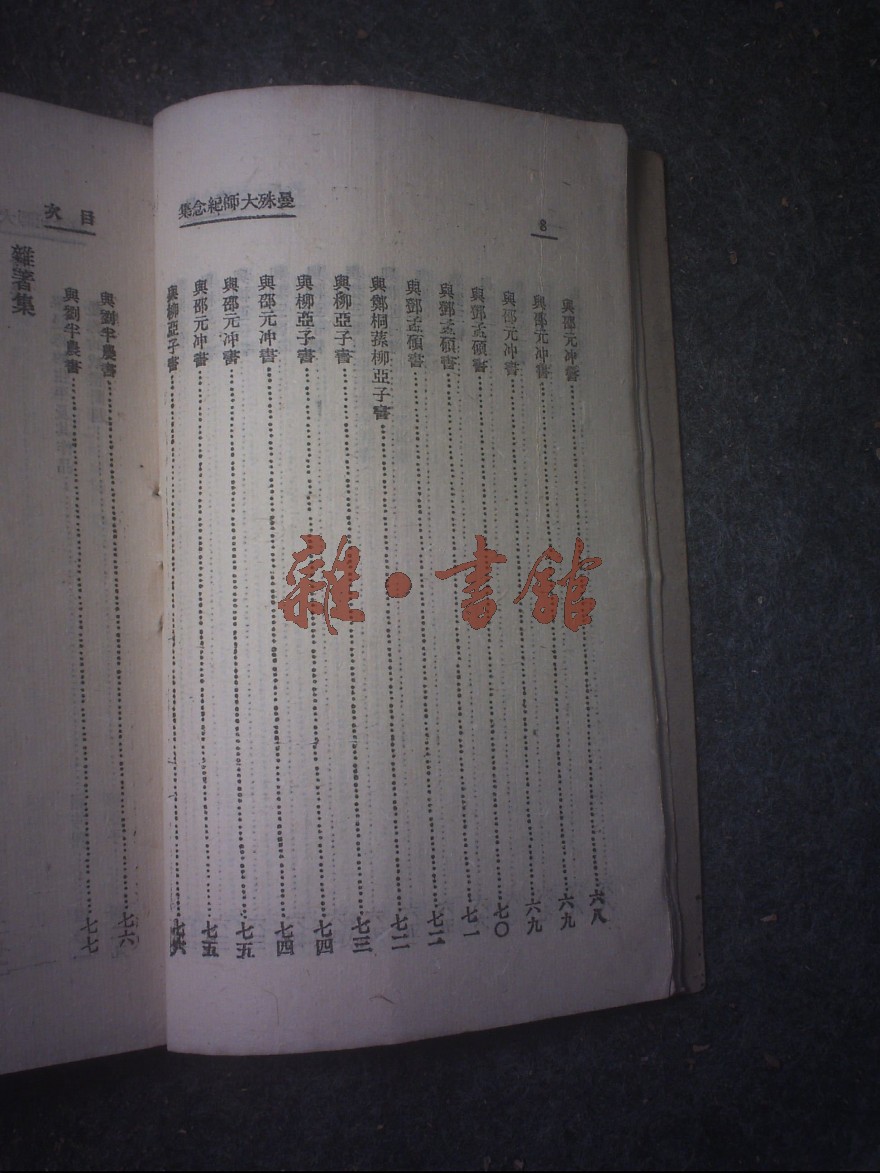 8
曼殊大師紀念集
與邵元冲書……六八
與邵元冲書……六九
與邵元冲書……六九
與鄧孟碩書……七〇
與鄧孟碩書……七一
與鄧孟碩書……七二
與鄭桐蓀柳亞子書……七二
與柳亞子書……七三
與柳亞子書……七四
與邵元冲書……七四
與邵元冲書……七五
與邵元冲書……七五
與柳亞子書……七六
目次
與劉半農書……七六
與劉半農書……七七
雜著集
雜·書館